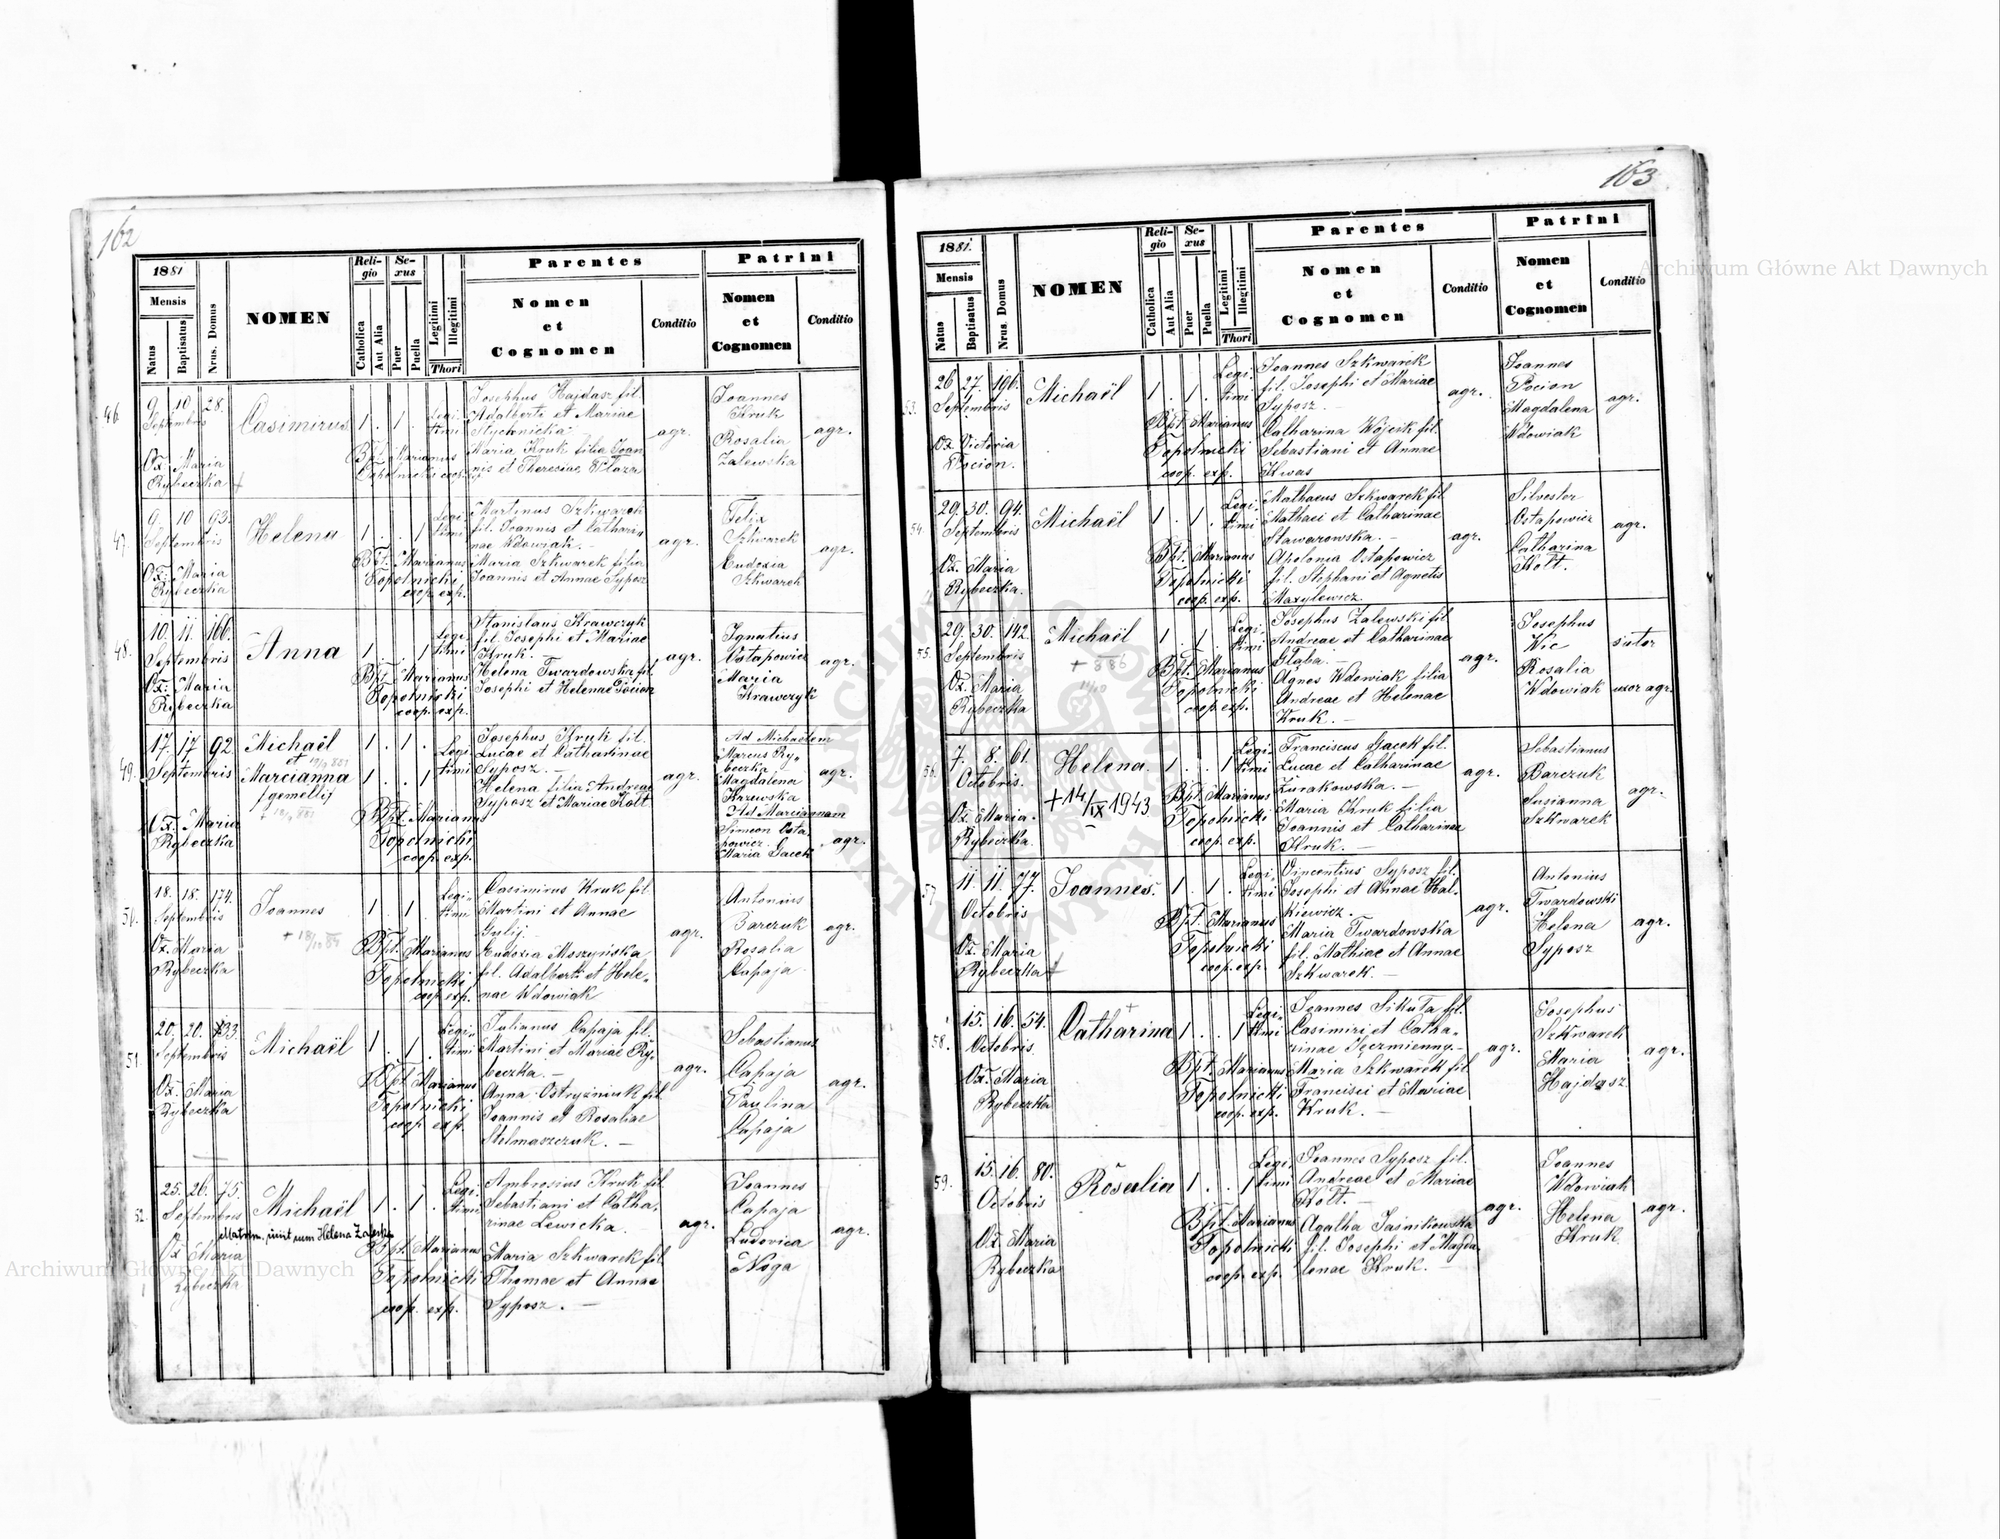 162
1881
Mensis
Natus
Baptisatus
Nrus. Domus
NOMEN
Religio
Catholica
Aut Alia
Sexus
Puer
Puella
Legitimi
Illegitimi
Thori
Parentes
Nomen
et
Cognomen
Conditio
Patrini
Nomen
et
Cognomen
Conditio
46.
9. 10 28.
Septembris
Oz. Maria
Rybeczka +
Casimirus
1 . 1 .
Legi-
timi
Bpt. Marianus
Topolnicki coop. exp.
Josephus Hajdasz fil.
Adalberti et Mariae
Stychnicka
Maria Kruk filia Joan
nis et Theresiae
agr.
Joannes
Kruk
Rosalia
Zalewska
agr.
47.
9. 10 93.
Septembris
Oz. Maria
Rybeczka
Helena
1 . . 1
Legi-
timi
Bpt. Marianus
Topolnicki
coop. exp.
Martinus Szkwarek
fil. Joannis et Cathari-
nae Wdowiak. —
Maria Szkwarek filia
Joannis et Annae Syposz
agr.
Felix
Szkwarek
Eudoxia
Szkwarek
agr.
48.
10. 11. 166.
Septembris
Oz. Maria
Rybeczka
Anna
1 . . 1
Legi-
timi
Bpt. Marianus
Topolnicki
coop. exp.
Stanislaus Krawczyk
fil. Josephi et Mariae
Kruk. —
Helena Twardowska fil.
Josephi et Helenae Pocion
agr.
Ignatius
Ostapowicz
Maria
Krawczyk
agr.
49.
17. 17 92.
Septembris
Oz. Maria
Rybeczka
Michaël
et
Marcianna
gemelli
1 . 1 .
1 . . 1
Legi-
timi
Bpt. Marianus
Topolnicki
coop. exp.
Josephus Kruk fil.
Lucae et Catharinae
Syposz. —
Helena filia Andreae
Syposz et Mariae Kołt
agr.
Ad Michaëlem
Marcus Ry-
beczka
Magdalena
Krzewska
Ad Marciannam
Simeon Osta
powicz
Maria Gacek
agr.
agr.
50.
18. 18. 174.
Septembris
Oz. Maria
Rybeczka
Joannes
1 . 1 .
Legi-
timi
Bpt. Marianus
Topolnicki
coop. exp.
Casimirus Kruk fil.
Martini et Annae
Eudoxia Moszyńska
fil. Adalberti et Hele-
nae Wdowiak
agr.
Antonius
Barczuk
Rosalia
Capaja
agr.
51.
20. 20. 133.
Septembris
Oz. Maria
Rybeczka
Michaël
1 . 1 .
Legi-
timi
Bpt. Marianus
Topolnicki
coop. exp.
Julianus Capaja fil.
Martini et Mariae Ry-
beczka. —
Anna Ostryżniuk fil.
Joannis et Rosaliae
Stelmaszczuk. —
agr.
Sebastianus
Capaja
Paulina
Capaja
agr.
52.
25. 26. 75.
Septembris
Oz. Maria
Rybeczka
Michaël
Matrim. iniit cum Helena
1 . 1 .
Legi-
timi
Bpt. Marianus
Topolnicki
coop. exp.
Ambrosius Kruk fil.
Sebastiani et Catha-
rinae Lewicka.
Maria Szkwarek fil.
Thomae et Annae
Syposz. —
agr.
Joannes
Capaja
Ludovica
Noga
agr.
163
1881.
Mensis
Natus
Baptisatus
Nrus. Domus
NOMEN
Religio
Catholica
Aut Alia
Sexus
Puer
Puella
Legitimi
Illegitimi
Thori
Parentes
Nomen
et
Cognomen
Conditio
Patrini
Nomen
et
Cognomen
Conditio
53.
26 27. 196.
Septembris
Oz. Victoria
Pocion.
Michaël
1 . 1 .
Legi-
timi
Bpt. Marianus
Topolnicki
coop. exp.
Joannes Szkwarek
fil. Josephi et Mariae
Syposz. —
Catharina Wójcik fil.
Sebastiani et Annae
Kwas
agr.
Joannes
Pocion
Magdalena
Wdowiak
agr.
54.
29. 30. 94.
Septembris
Oz. Maria
Rybeczka.
Michaël
1 . 1 .
Legi-
timi
Bpt. Marianus
Topolnicki
coop. exp.
Mathaeus Szkwarek fil.
Mathaei et Catharinae
Stawarowska. —
Apolonia Ostapowicz
fil. Stephani et Agnetis
Marylewicz.
agr.
Silvester
Ostapowicz
Catharina
Kołt.
agr.
55.
29. 30. 142.
Septembris
Oz. Maria
Rybeczka
Michaël
1 . 1 .
Legi-
timi
Bpt. Marianus
Topolnicki
coop. exp.
Josephus Zalewski fil.
Andreae et Catharinae
Głąba. —
Agnes Wdowiak filia
Andreae et Helenae
Kruk. —
agr.
Josephus
Wic
Rosalia
Wdowiak
sutor
uxor agr.
56.
7. 8. 61.
Octobris.
Oz. Maria
Rybeczka.
Helena.
+ 14/IX 1943
1 . . 1
Legi-
timi
Bpt. Marianus
Topolnicki
coop. exp.
Franciscus Gacek fil.
Lucae et Catharinae
Żurakowska. —
Maria Kruk filia
Joannis et Catharinae
Kruk. —
agr.
Sebastianus
Barczuk
Susianna
Szkwarek
agr.
57.
11. 11. 77.
Octobris
Oz. Maria
Rybeczka
Joannes.
1 . 1 .
Legi-
timi
Bpt. Marianus
Topolnicki
coop. exp.
Vincentius Syposz fil.
Josephi et Annae Hal-
kiewicz.
Maria Twardowska
fil. Mathiae et Annae
Szkwarek. —
agr.
Antonius
Twardowski
Helena
Syposz
agr.
58.
15. 16. 54.
Octobris
Oz. Maria
Rybeczka
Catharina
1 . . 1
Legi-
timi
Bpt. Marianus
Topolnicki
coop. exp.
Joannes Sikuta fil.
Casimiri et Catha-
rinae
Maria Szkwarek fil.
Francisci et Mariae
Kruk. —
agr.
Josephus
Szkwarek
Maria
Hajdasz
agr.
59.
15. 16. 80.
Octobris
Oz. Maria
Rybeczka
Rosalia
1 . . 1
Legi-
timi
Bpt. Marianus
Topolnicki
coop. exp.
Joannes Syposz fil.
Andreae et Mariae
Kołt. —
Agatha Jaśnikowska
fil. Josephi et Magda-
lenae Kruk. —
agr.
Joannes
Wdowiak
Helena
Kruk
agr.
Archiwum Główne Akt Dawnych
Archiwum Główne Akt Dawnych